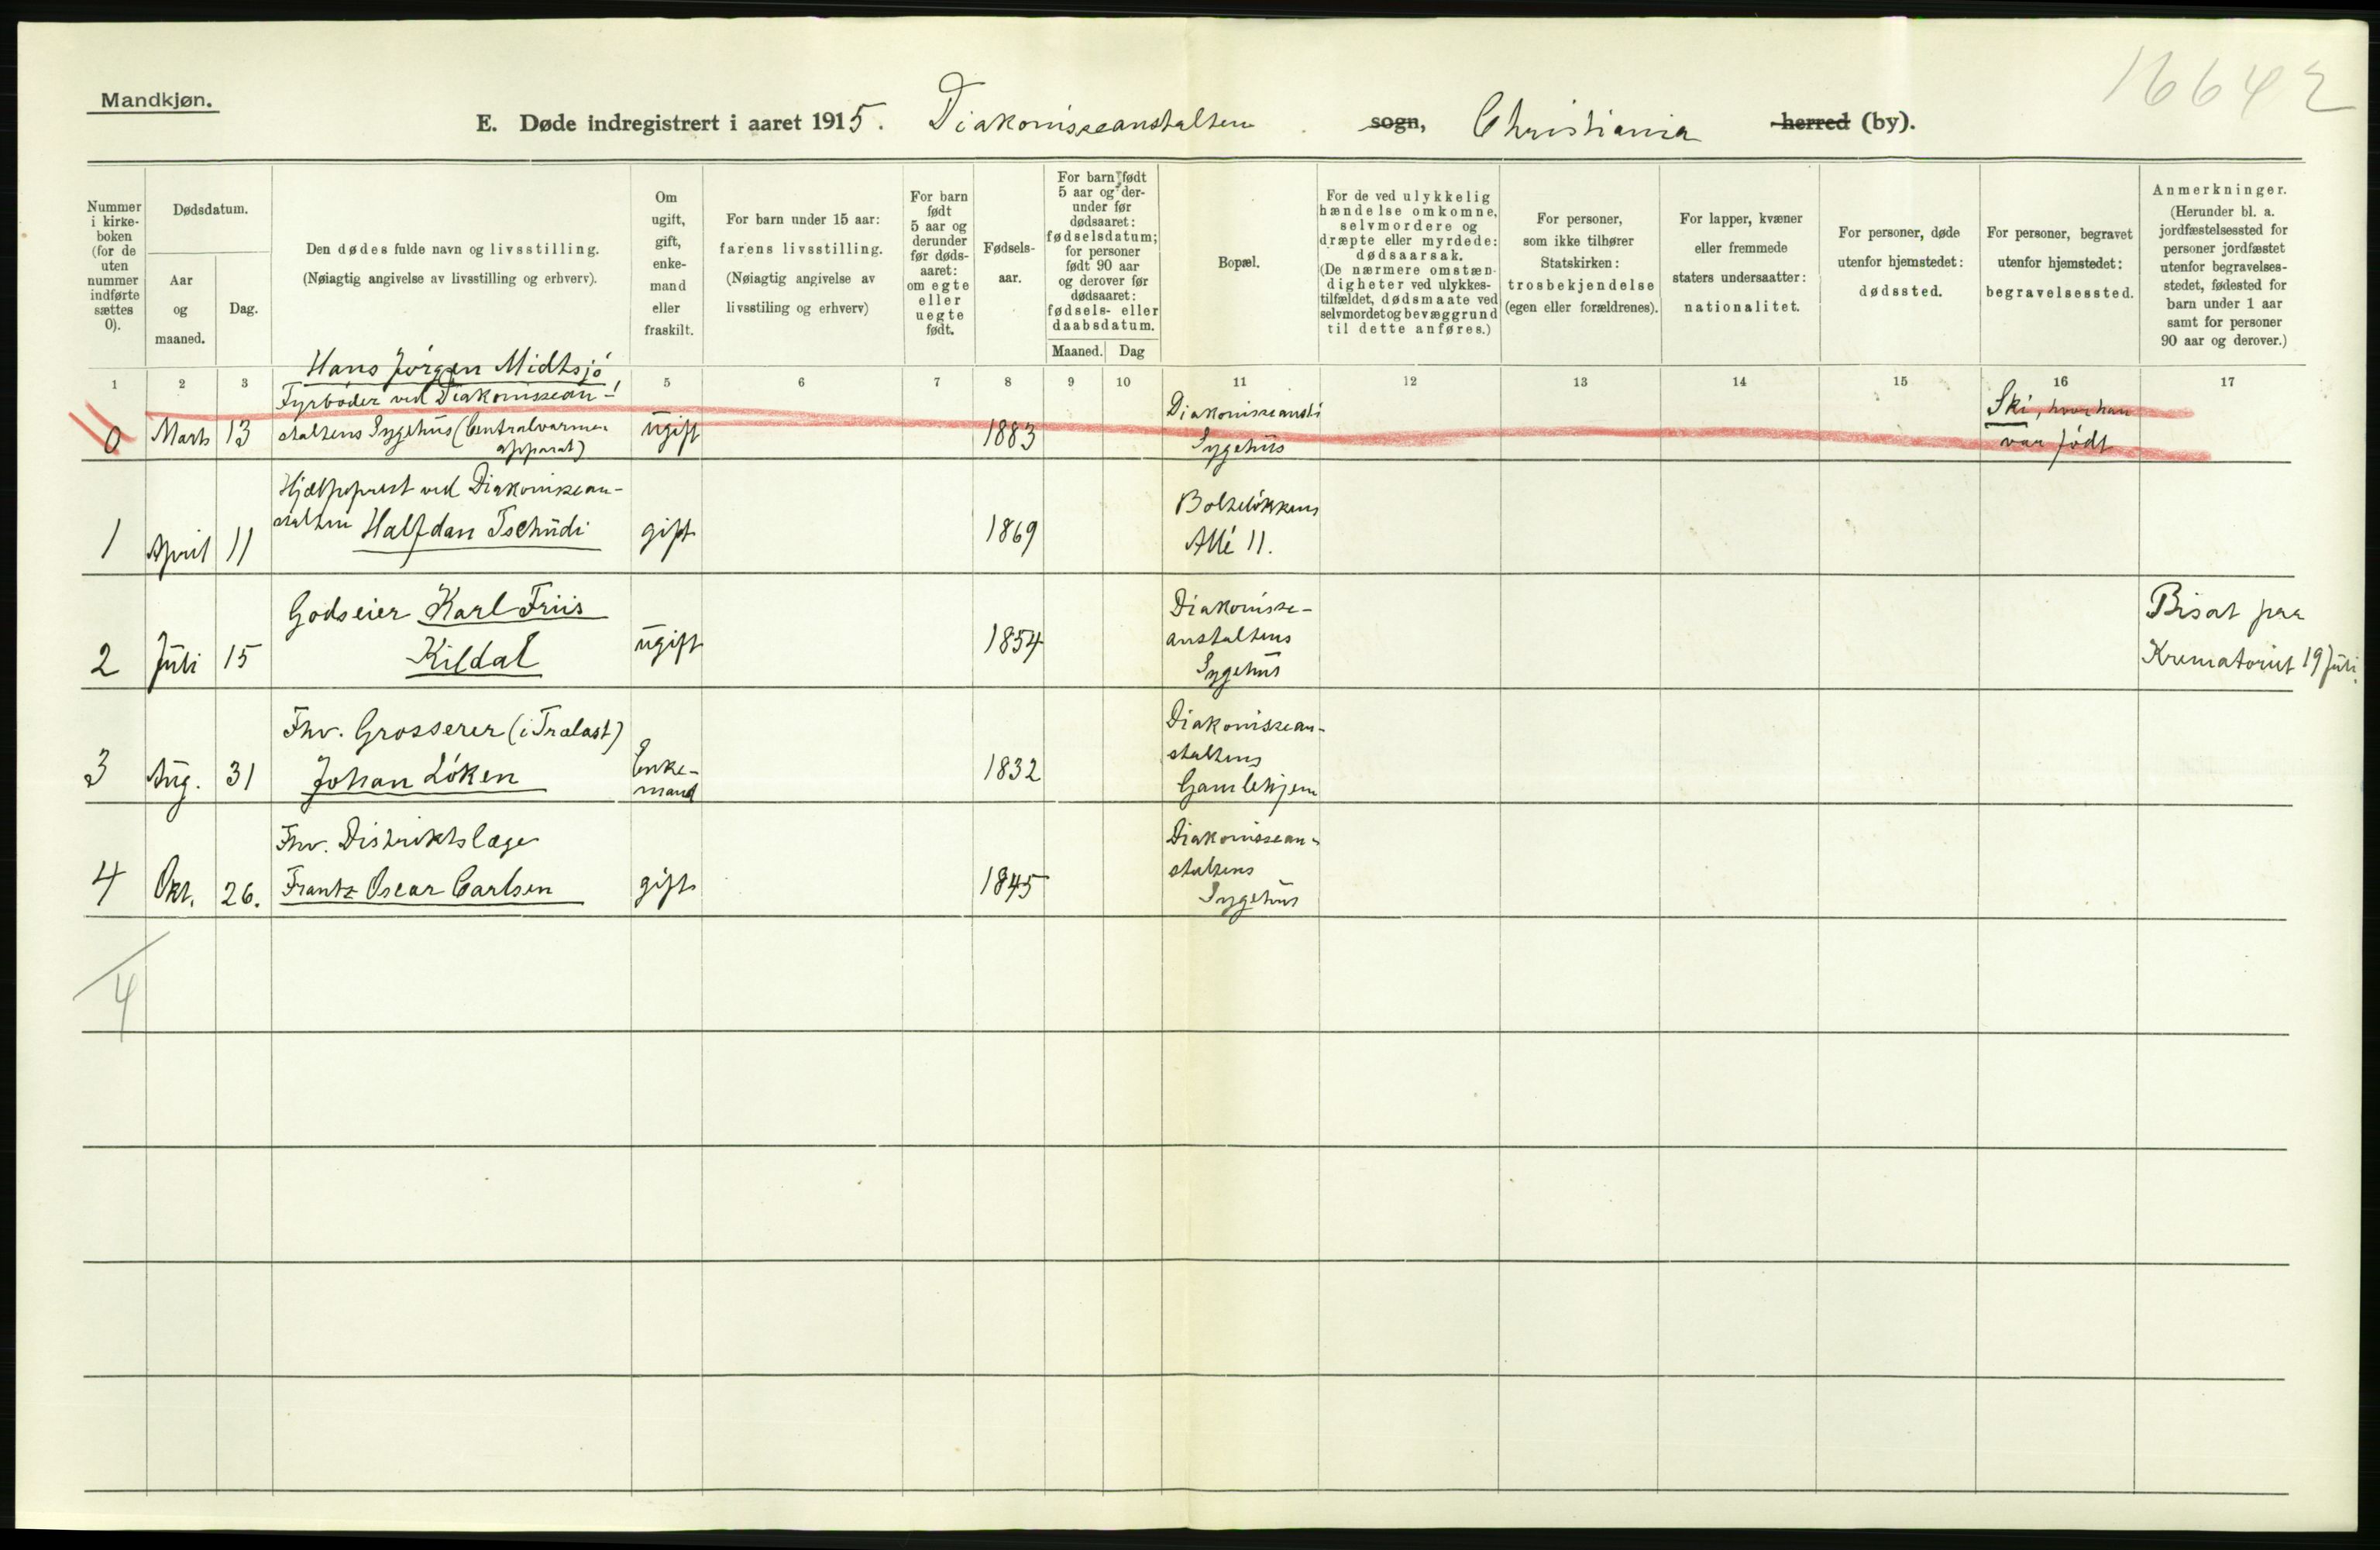 16642
Mandkjøn.
E. Døde indregistrert i aaret 1915. Diakonisseanstalten sogn, Christiania herred (by).
Nummer i kirke-boken (for de uten nummer indførte sættes 0).
Dødsdatum.
Aar og maaned.
Dag.
Den dødes fulde navn og livsstilling.
(Nøiagtig angivelse av livsstilling og erhverv).
Om ugift, gift, enke-mand eller fraskilt.
For barn under 15 aar: farens livsstilling.
(Nøiagtig angivelse av livsstiling og erhverv)
For barn født 5 aar og derunder før døds-aaret: om egte eller uegte født.
Fødsels-aar.
For barn født 5 aar og der-under før dødsaaret: fødselsdatum; for personer født 90 aar og derover før dødsaaret: fødsels- eller daabsdatum.
Maaned.
Dag
Bopæl.
For de ved ulykkelig hændelse omkomne, selvmordere og dræpte eller myrdede: dødsaarsak.
(De nærmere omstæn-digheter ved ulykkes-tilfældet, dødsmaate ved selvmordet og bevæggrund til dette anføres.)
For personer, som ikke tilhører Statskirken: trosbekjendelse (egen eller forældrenes).
For lapper, kvæner eller fremmede staters undersaatter: nationalitet.
For personer, døde utenfor hjemstedet: dødssted.
For personer, begravet utenfor hjemstedet: begravelsessted.
Anmerkninger.
(Herunder bl. a. jordfæstelsessted for personer jordfæstet utenfor begravelses-stedet, fødested for barn under 1 aar samt for personer 90 aar og derover.)
1 2 3 5 6 7 8 9 10 11 12 13 14 15 16 17
Hans Jörgen Midtsjö
Fyrböder ved Diakonissean-
0 Marts 13 staltens Sygehus (Centralvarme-apparat) ugift 1883 Diakonisseanst. Sygehus Ski, hvor han var født
Hjælpeprest ved Diakonissean-
1 April 11 stalten Halfdan Tschudi gift 1869 Bolteløkkens Allé 11.
Godseier Karl Friis
2 Juli 15 Kildal ugift 1854 Diakonisse-anstaltens Sygehus Bisat paa Krematoriet 19 Juli.
Fhv. Grosserer (i Trælast)
3 Aug. 31 Johan Löken Enke-mand 1832 Diakonissean-staltens Gamlehjem
Fhv. Distriktslæge
4 Okt. 26. Frantz Oscar Carlsen gift 1845 Diakonissean-staltens Sygehus
4